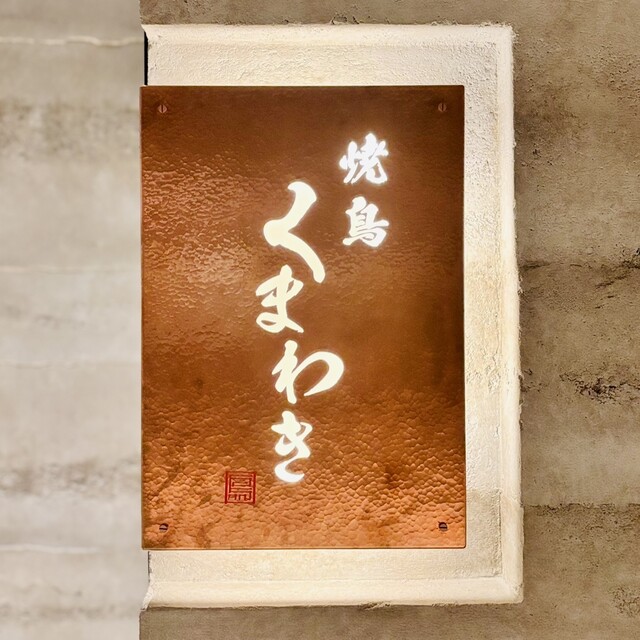 焼鳥
くまわき